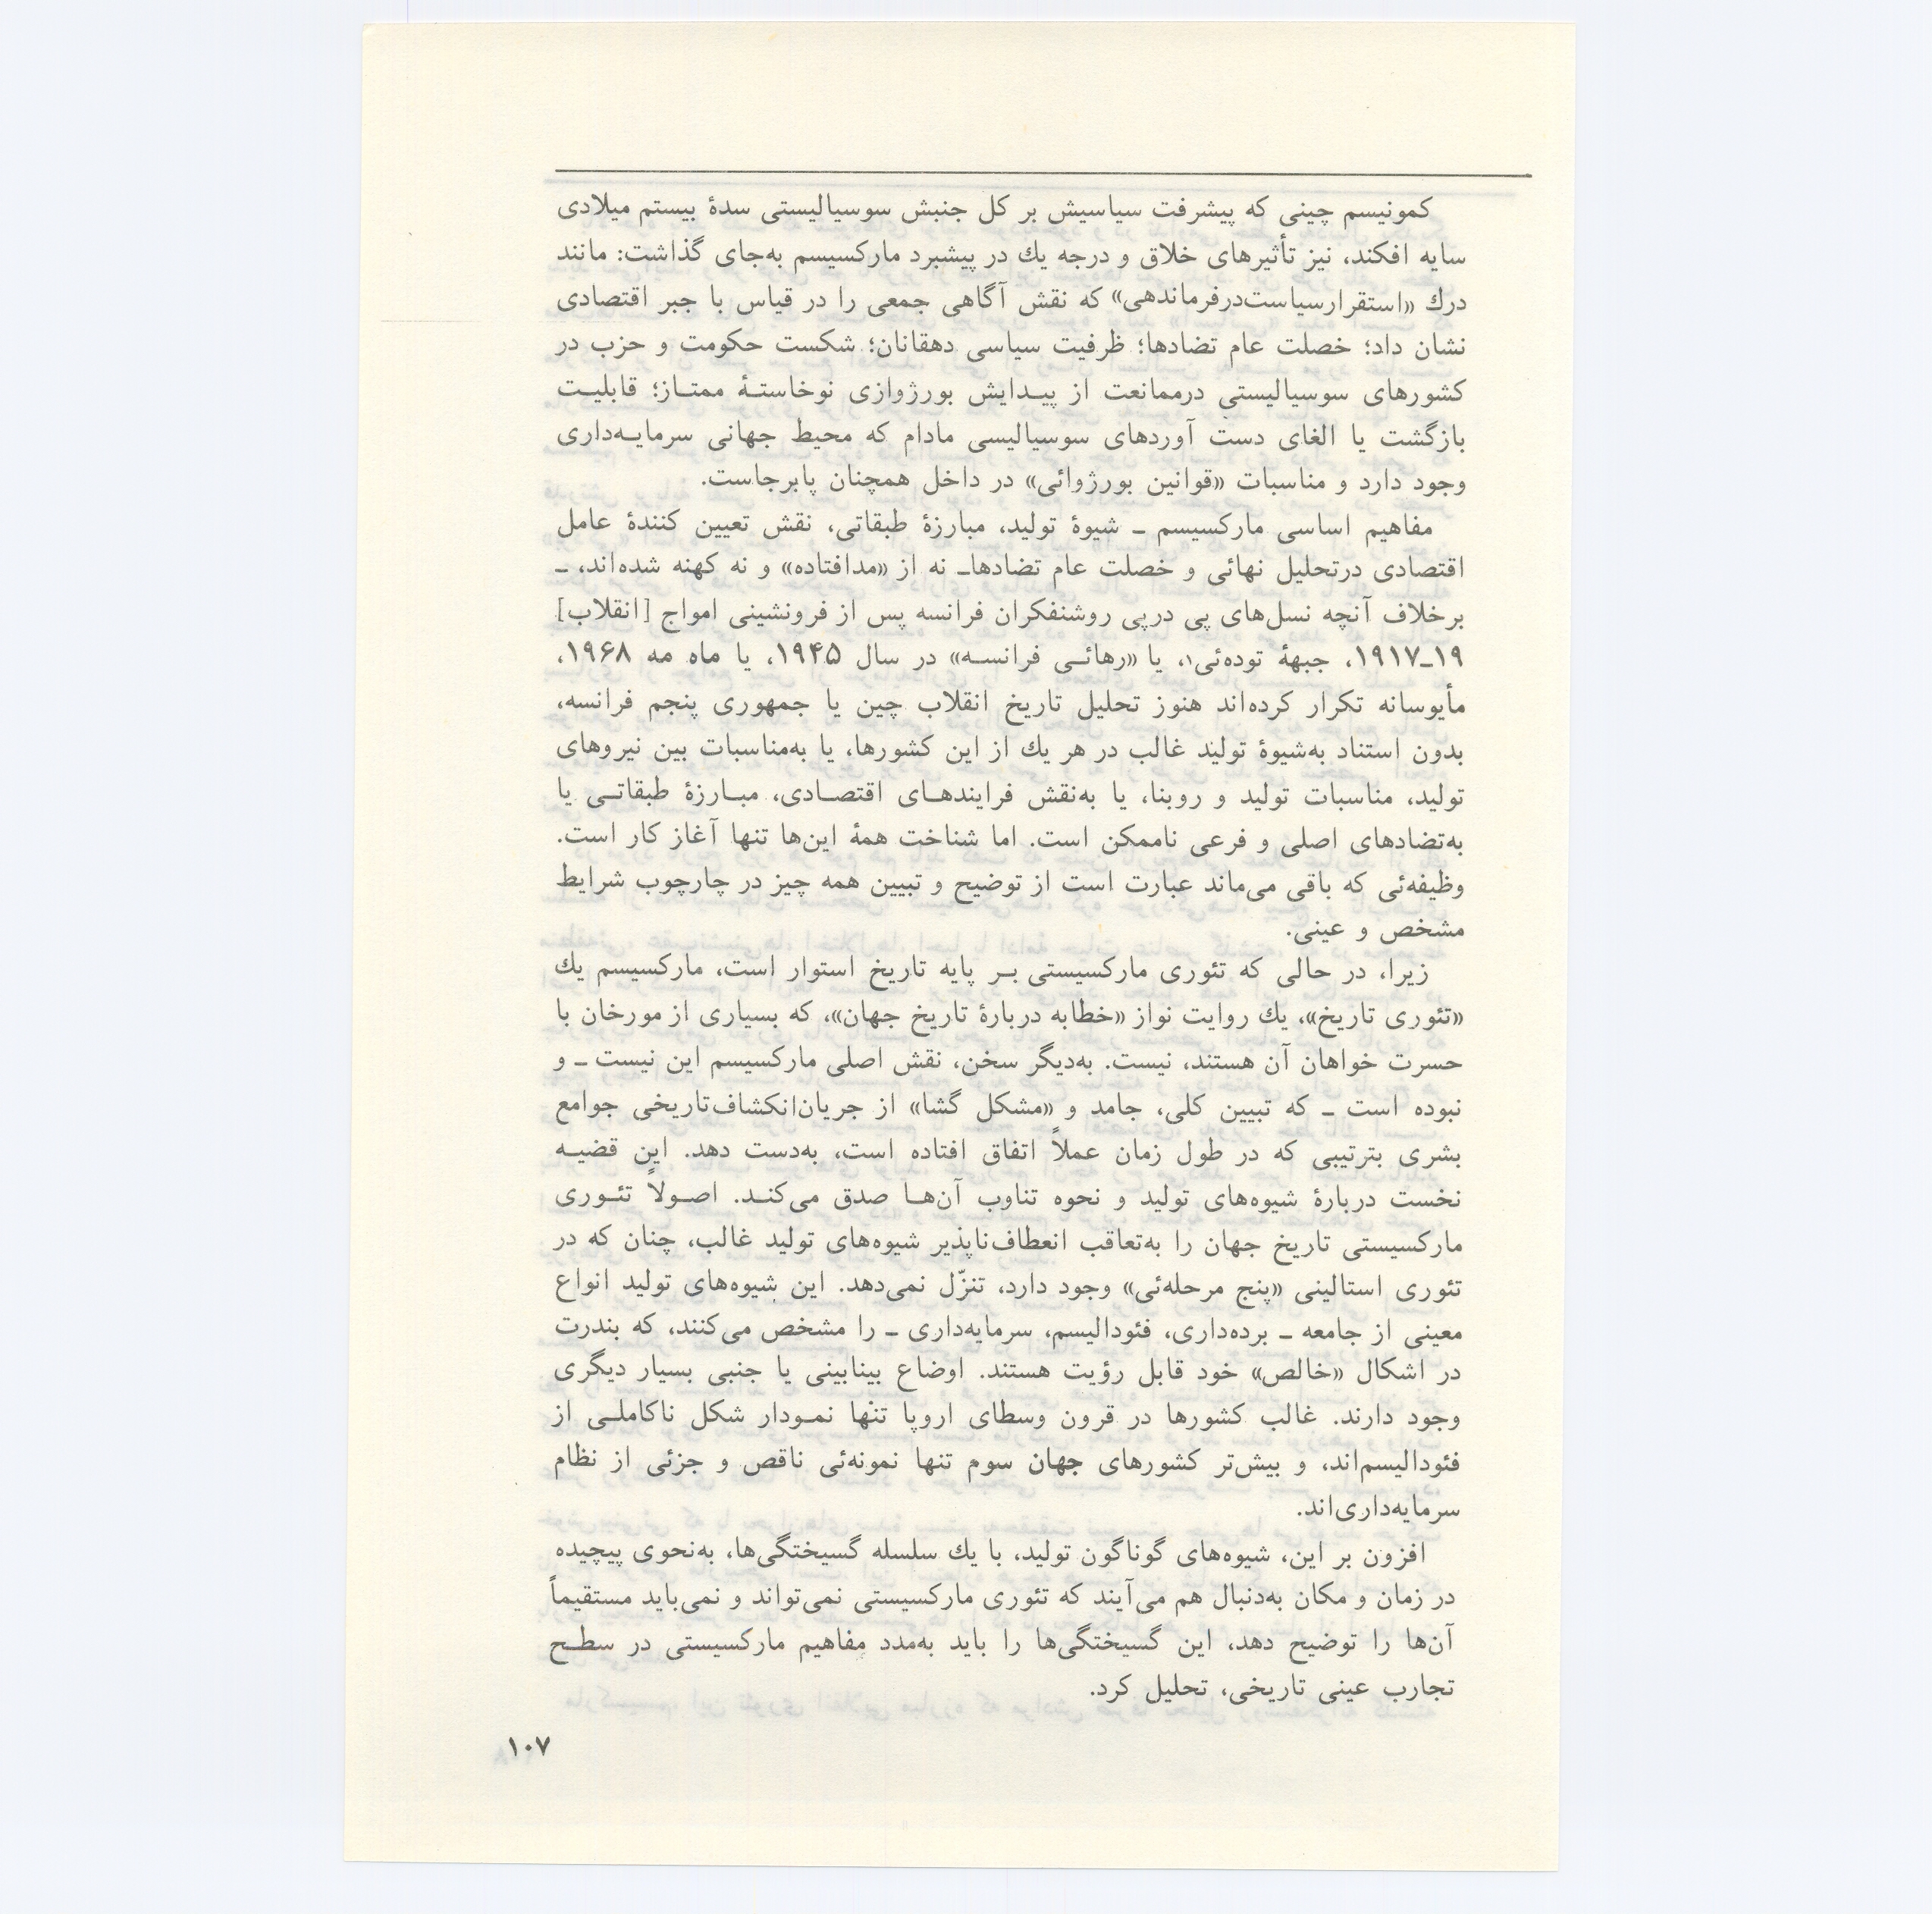 کمونیسم چینی که پیشرفت سیاسیش بر کل جنبش سوسیالیستی سدهٔ بیستم میلادی
سایه افکند، نیز تأثیرهای خلاق و درجه یك در پیشبرد مارکسیسم به‌جای گذاشت: مانند
درك «استقرارسیاست‌درفرماندهی» که نقش آگاهی جمعی را در قیاس با جبر اقتصادی
نشان داد؛ خصلت عام تضادها؛ ظرفیت سیاسی دهقانان؛ شکست حکومت و حزب در
کشورهای سوسیالیستی درممانعت از پیـدایش بورژوازی نوخاستـهٔ ممتـاز؛ قابلیـت
بازگشت یا الغای دست آوردهای سوسیالیسی مادام که محیط جهانی سرمایـه‌داری
وجود دارد و مناسبات «قوانین بورژوائی» در داخل همچنان پابرجاست.
مفاهیم اساسی مارکسیسم ـ شیوهٔ تولید، مبارزهٔ طبقاتی، نقش تعیین کنندهٔ عامل
اقتصادی درتحلیل نهائی و خصلت عام تضادهاـ نه از «مدافتاده» و نه کهنه شده‌اند، ـ
برخلاف آنچه نسل‌های پی درپی روشنفکران فرانسه پس از فرونشینی امواج [انقلاب]
۱۹ـ۱۹۱۷، جبههٔ توده‌ئی۱، یا «رهائـی فرانسـه» در سال ۱۹۴۵، یا ماه مه ۱۹۶۸،
مأیوسانه تکرار کرده‌اند هنوز تحلیل تاریخ انقلاب چین یا جمهوری پنجم فرانسه،
بدون استناد به‌شیوهٔ تولید غالب در هر یك از این کشورها، یا به‌مناسبات بین نیروهای
تولید، مناسبات تولید و روبنا، یا به‌نقش فرایندهـای اقتصـادی، مبـارزهٔ طبقاتـی یا
به‌تضادهای اصلی و فرعی ناممکن است. اما شناخت همهٔ این‌ها تنها آغاز کار است.
وظیفه‌ئی که باقی می‌ماند عبارت است از توضیح و تبیین همه چیز در چارچوب شرایط
مشخص و عینی.
زیرا، در حالی که تئوری مارکسیستی بـر پایه تاریخ استوار است، مارکسیسم یك
«تئوری تاریخ»، یك روایت نواز «خطابه دربارهٔ تاریخ جهان»، که بسیاری از مورخان با
حسرت خواهان آن هستند، نیست. به‌دیگر سخن، نقش اصلی مارکسیسم این نیست ـ و
نبوده است ـ که تبیین کلی، جامد و «مشکل گشا» از جریان‌انکشاف‌تاریخی جوامع
بشری بترتیبی که در طول زمان عملاً اتفاق افتاده است، به‌دست دهد. این قضیـه
نخست دربارهٔ شیوه‌های تولید و نحوه تناوب آن‌هـا صدق می‌کنـد. اصـولاً تئـوری
مارکسیستی تاریخ جهان را به‌تعاقب انعطاف‌ناپذیر شیوه‌های تولید غالب، چنان که در
تئوری استالینی «پنج مرحله‌ئی» وجود دارد، تنزّل نمی‌دهد. این شیوه‌های تولید انواع
معینی از جامعه ـ برده‌داری، فئودالیسم، سرمایه‌داری ـ را مشخص می‌کنند، که بندرت
در اشکال «خالص» خود قابل رؤیت هستند. اوضاع بینابینی یا جنبی بسیار دیگری
وجود دارند. غالب کشورها در قرون وسطای اروپا تنها نمـودار شکل ناکاملـی از
فئودالیسم‌اند، و بیش‌تر کشورهای جهان سوم تنها نمونه‌ئی ناقص و جزئی از نظام
سرمایه‌داری‌اند.
افزون بر این، شیوه‌های گوناگون تولید، با یك سلسله گسیختگی‌ها، به‌نحوی پیچیده
در زمان و مکان به‌دنبال هم می‌آیند که تئوری مارکسیستی نمی‌تواند و نمی‌باید مستقیماً
آن‌ها را توضیح دهد، این گسیختگی‌ها را باید به‌مدد مفاهیم مارکسیستی در سطـح
تجارب عینی تاریخی، تحلیل کرد.
۱۰۷